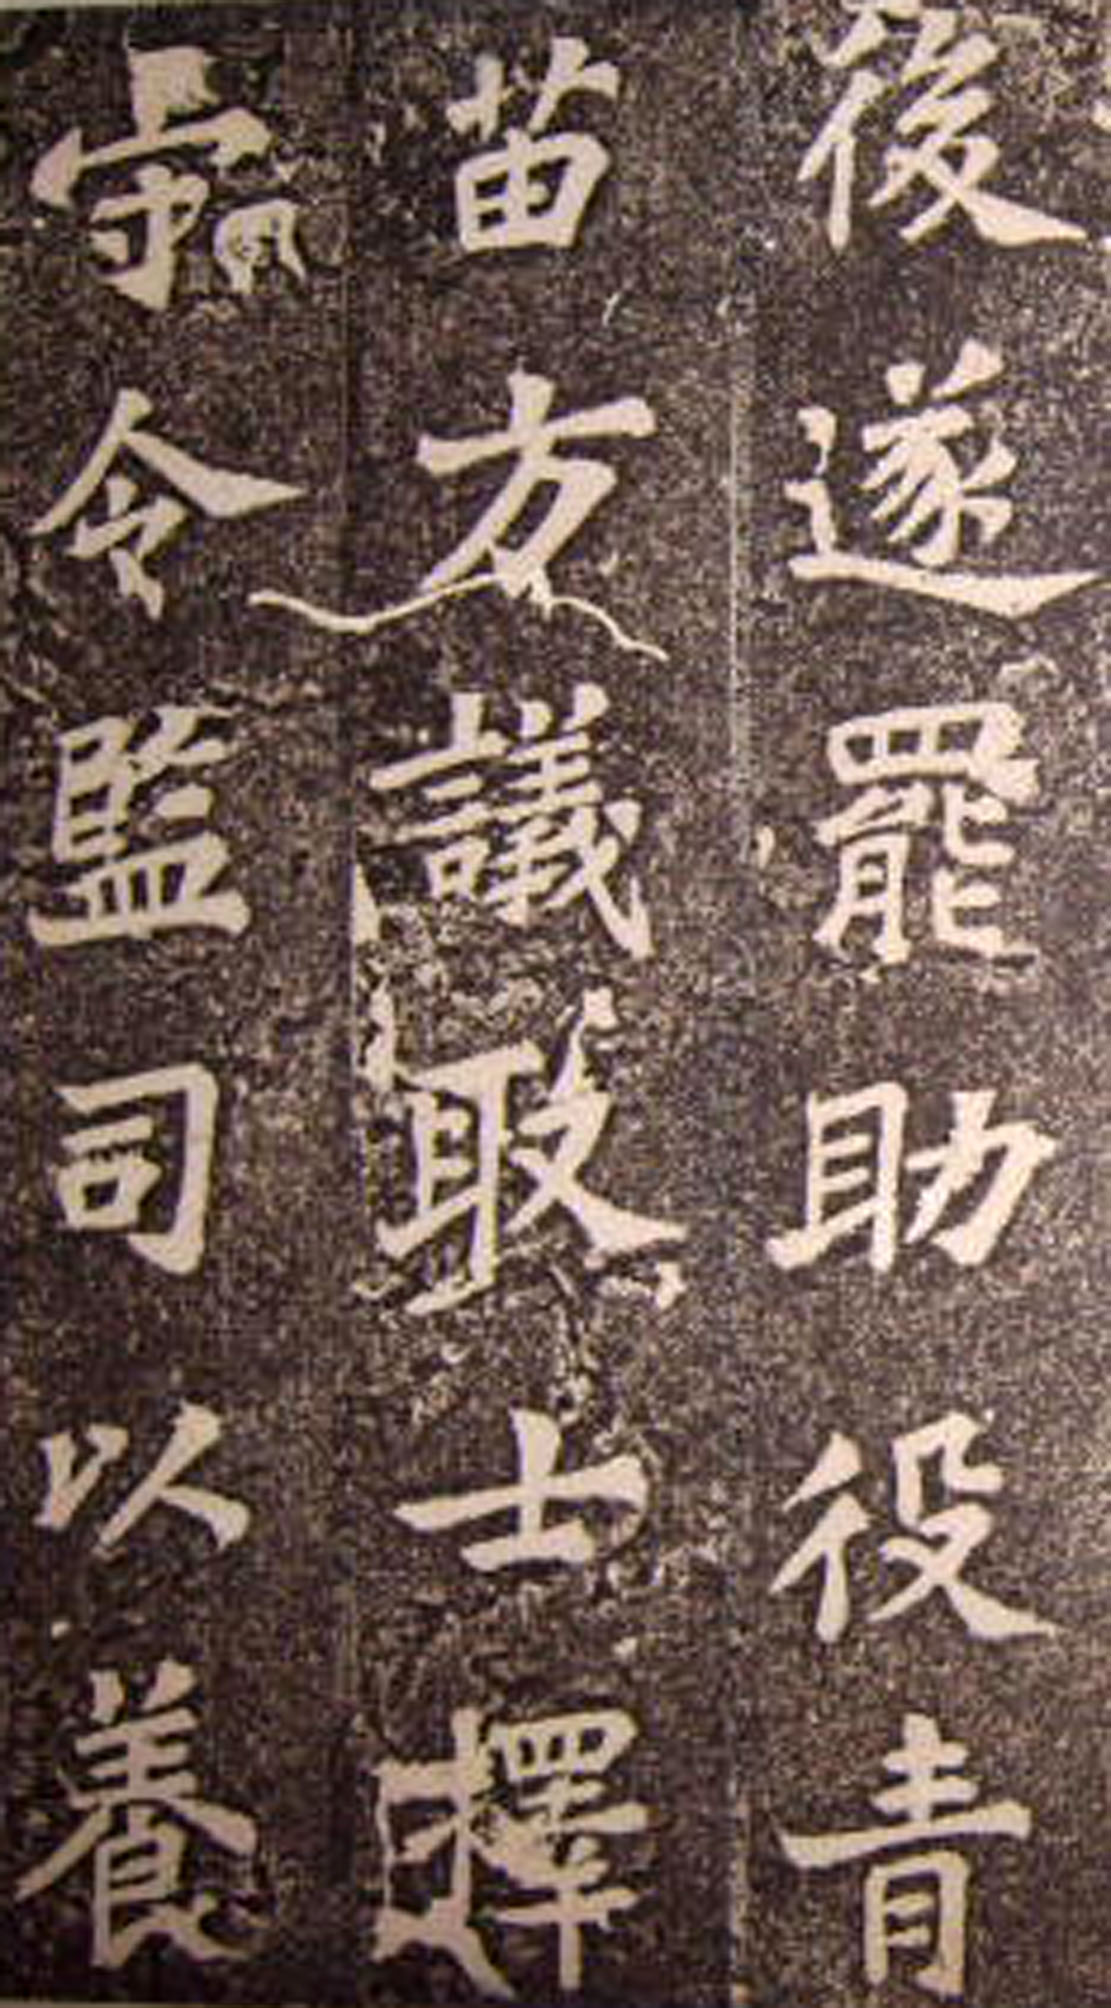 後遂罷助役青
苗方議取士擇
守令監司以養